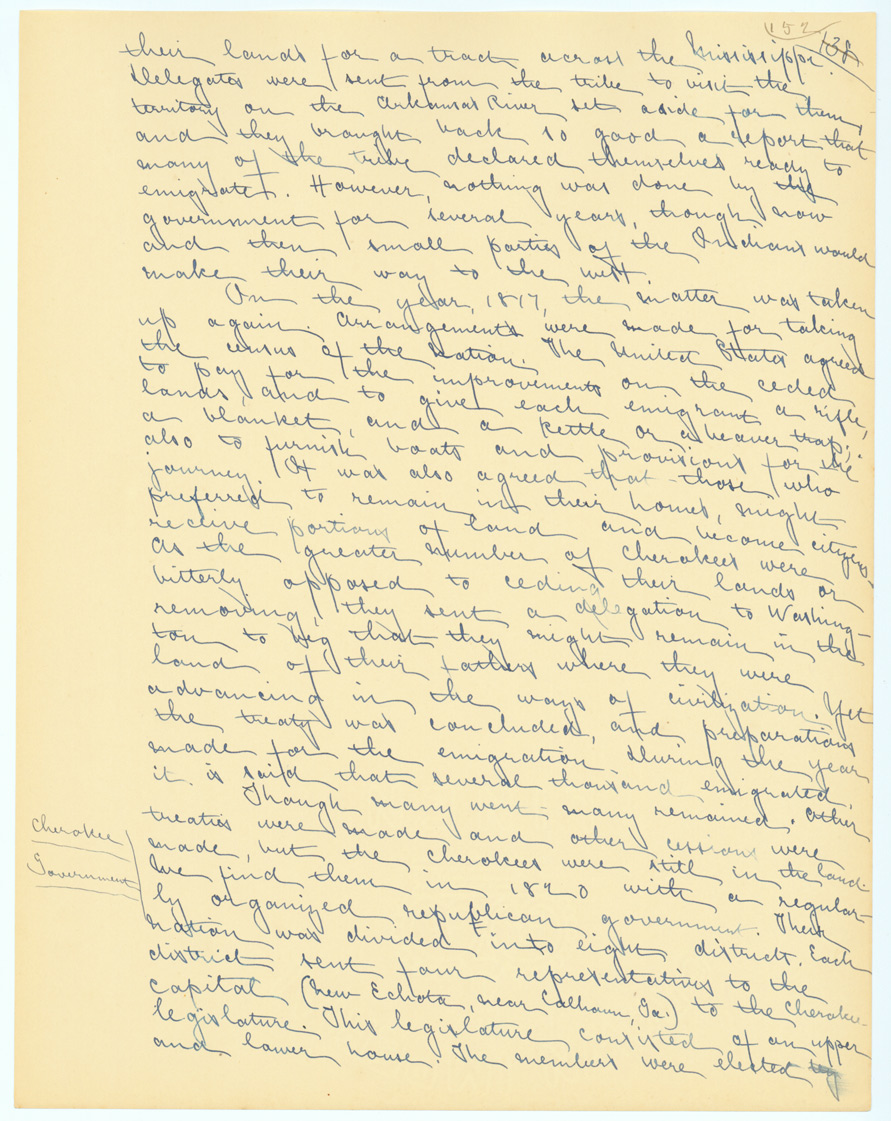 152
138
their lands for a tract across the Mississippi.
Delegates were sent from the tribe to visit the
territory on the Arkansas River set aside for them,
and they brought back so good a report that
many of the tribe declared themselves ready to
emigrate. However, nothing was done by the
government for several years, though now
and then small parties of the Indians would
make their way to the west.
On the year, 1817, the matter was taken
up again. Arrangements were made for taking
the census of the nation. The United States agreed
to pay for the improvements on the ceded
lands, and to give each emigrant a rifle,
a blanket, and a kettle or a beaver trap;
also to furnish boats and provisions for the
journey. It was also agreed that those who
preferred to remain in their homes, might
receive portions of land and become citizens.
As the greater number of Cherokees were
bitterly opposed to ceding their lands or
removing, they sent a delegation to Washing-
ton to beg that they might remain in the
land of their fathers where they were
advancing in the ways of civilization. Yet
the treaty was concluded, and preparations
made for the emigration. During the year
it is said that several thousand emigrated.
Though many went - many remained. Other
treaties were made and other cessions were
made, but the Cherokees were still in the land.
Cherokee
Government
We find them in 1820 with a regular-
ly organized republican government. Their
nation was divided into eight districts. Each
district sent four representatives to the
capital (New Echota, near Calhoun, Ga.) to the Cherokee
legislature. This legislature consisted of an upper
and lower house. The members were elected by